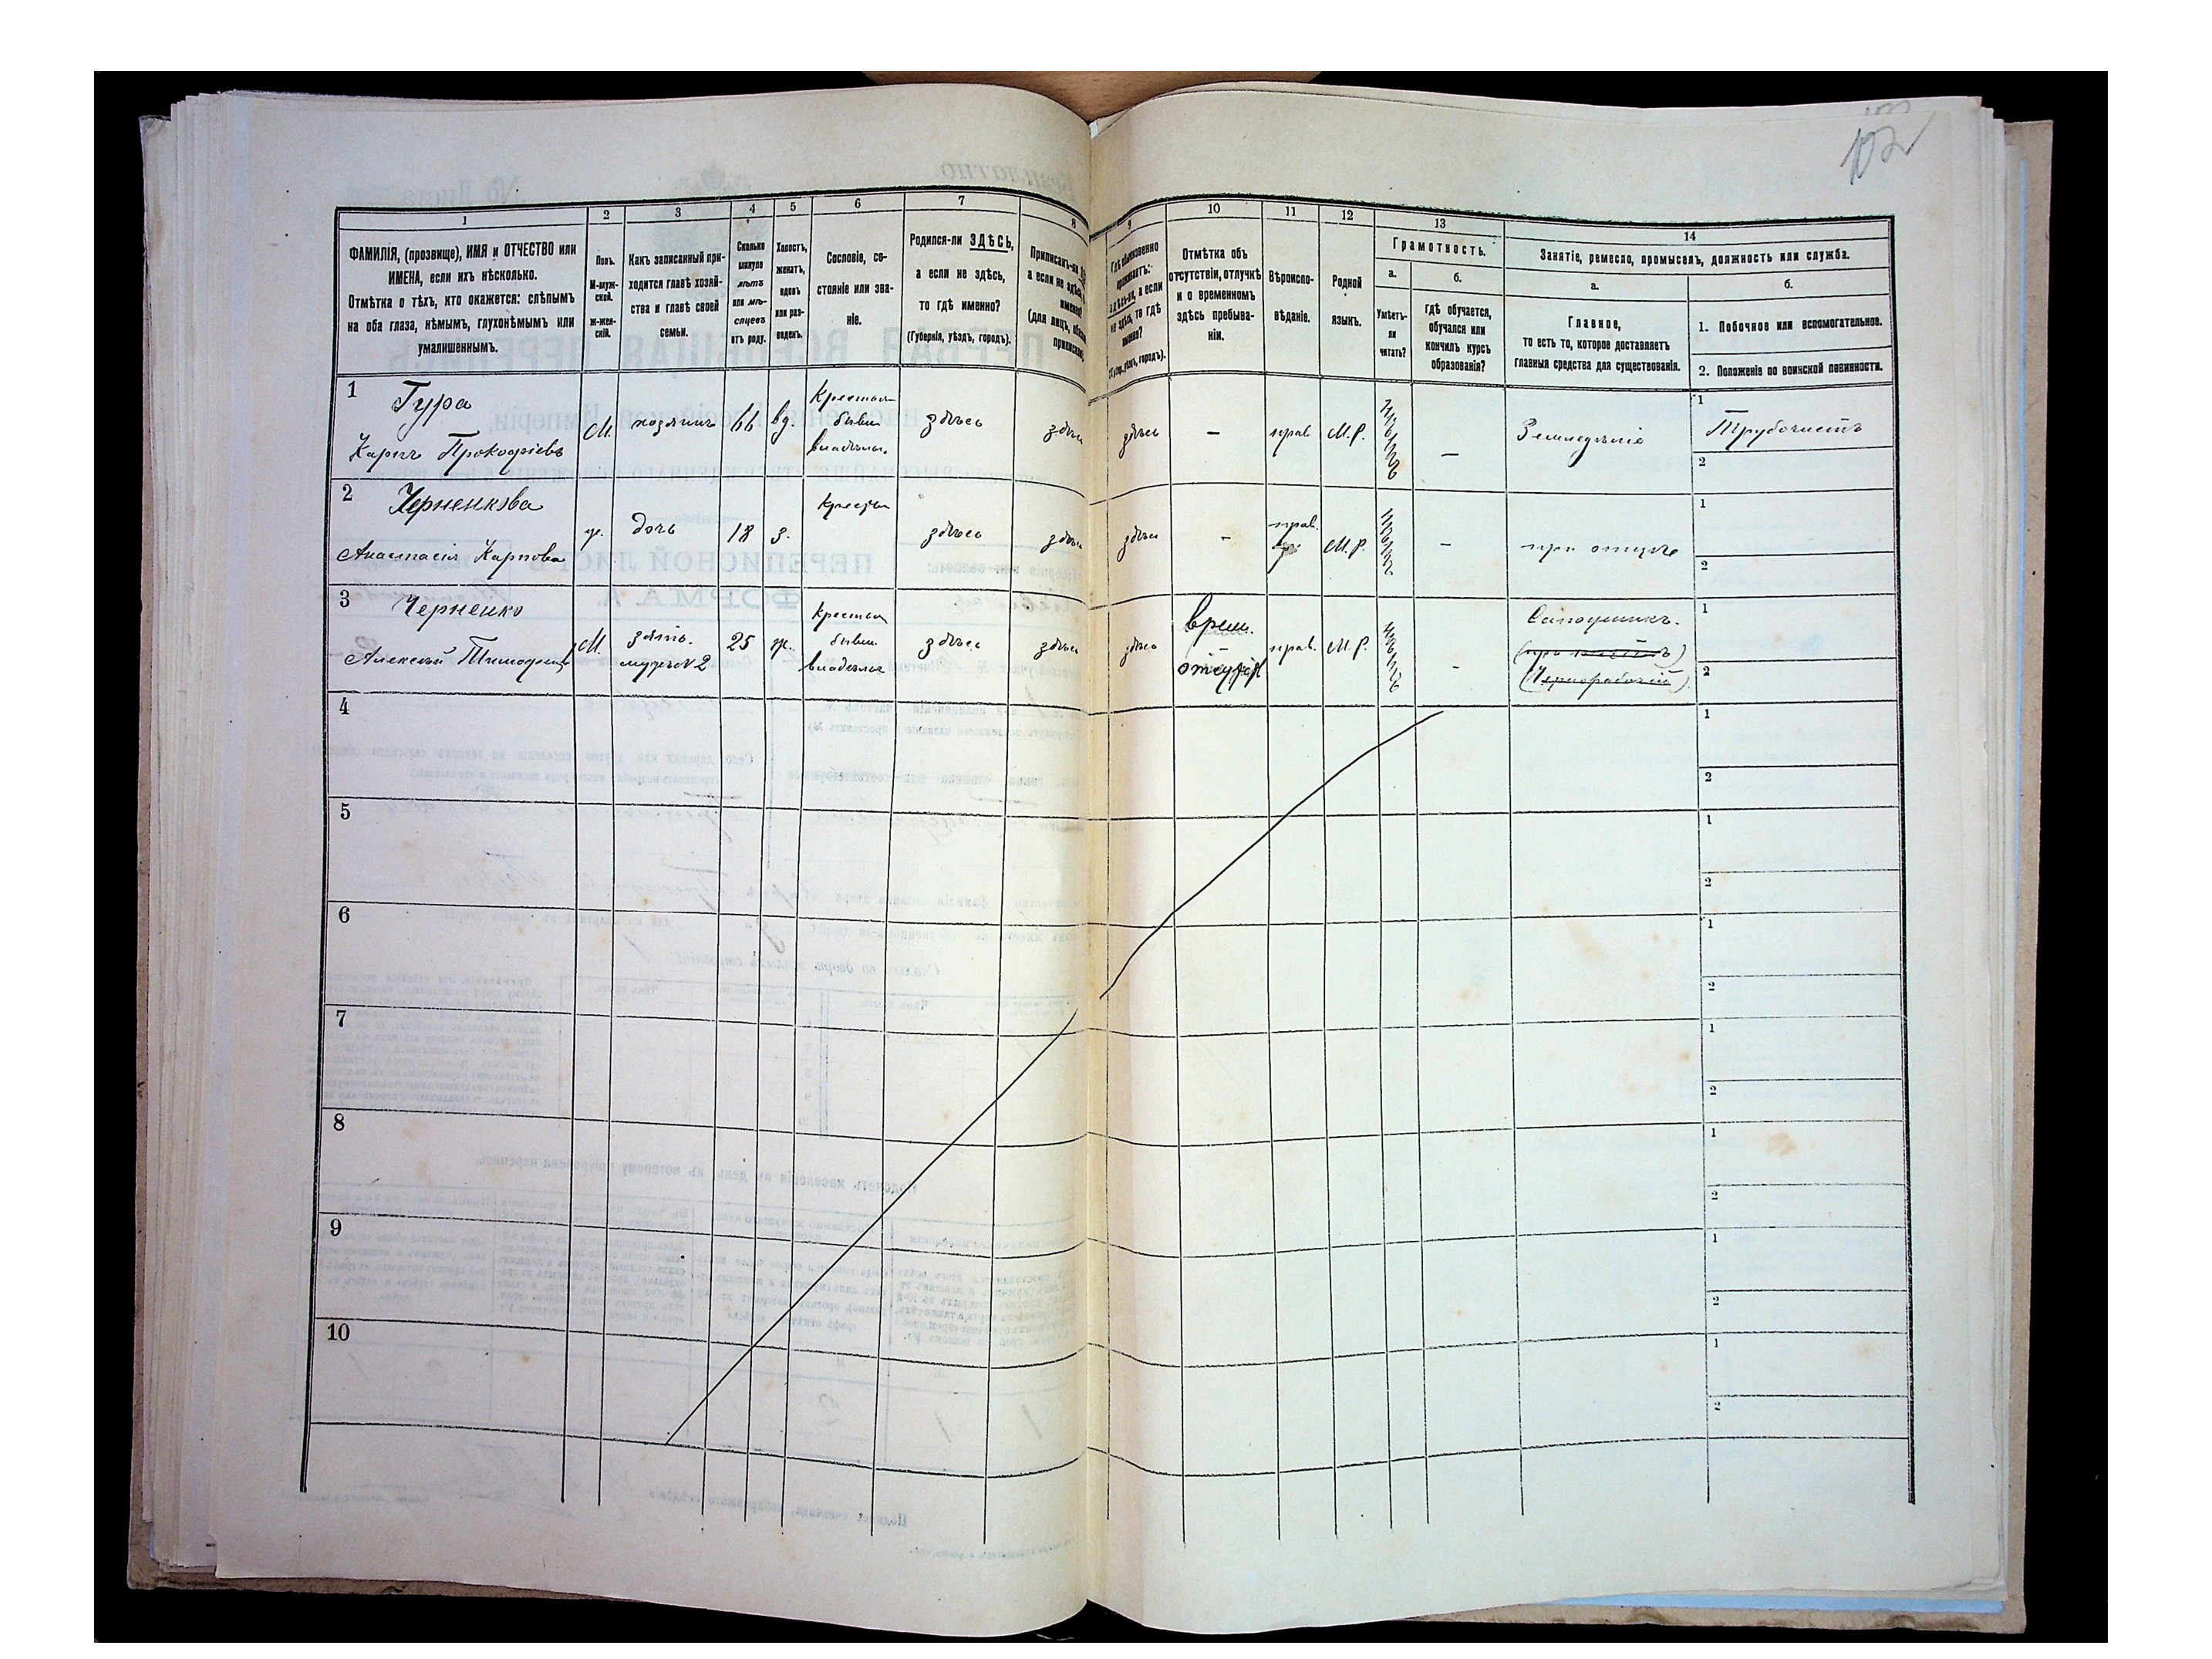 102
1
2
3
4
5
6
7
8
9
10
11
12
13
14
ФАМИЛІЯ, (прозвище), ИМЯ и ОТЧЕСТВО или
ИМЕНА, если ихъ нѣсколько.
Отмѣтка о тѣхъ, кто окажется: слѣпымъ
на оба глаза, нѣмымъ, глухонѣмымъ или
умалишеннымъ.
Полъ.
М-муж-
ской.
ж-жен-
скій.
Какъ записанный при-
ходится главѣ хозяй-
ства и главѣ своей
семьи.
Сколько
минуло
лѣтъ
или мѣ-
сяцевъ
отъ роду.
Холостъ,
женатъ,
вдовъ
или раз-
веденъ.
Сословіе, со-
стояніе или зва-
ніе.
Родился-ли ЗДѢСЬ,
а если не здѣсь,
то гдѣ именно?
(Губернія, уѣздъ, городъ).
Приписанъ-ли
а если не здѣсь
именно?
(для лицъ,
Гдѣ обыкновенно
проживаетъ:
здѣсь-ли, а если
не здѣсь, то гдѣ
именно?
Отмѣтка объ
отсутствіи, отлучкѣ
и о временномъ
здѣсь пребыва-
ніи.
Вѣроиспо-
вѣданіе.
Родной
языкъ.
Грамотность.
а.
Умѣетъ-
ли
читать?
б.
гдѣ обучается,
обучался или
кончилъ курсъ
образованія?
Занятіе, ремесло, промыселъ, должность или служба.
а.
Главное,
то есть то, которое доставляетъ
главныя средства для существованія.
б.
1. Побочное или вспомогательное.
2. Положеніе по воинской повинности.
1
Гура
Карпъ Прокофіевъ
М.
хозяинъ
66
вд.
Крестьян
бывш.
владѣльч.
здѣсь
здѣсь
здѣсь
—
прав.
М.Р.
—
Земледѣліе
1
Трубочистъ
2
2
Черненкова
Анастасія Карпова
ж.
дочь
18
з.
Крестьян
здѣсь
здѣсь
здѣсь
-
прав.
М.Р.
-
при отцѣ
1
2
3
Черненко
Алексѣй Тимофеевъ
М.
зять.
мужъ №2
25
ж.
Крестьян
бывш.
владѣльч
здѣсь
здѣсь
здѣсь
врем.
прав.
М.Р.
-
Сапожникъ.
(Чернорабочій)
1
2
4
1
2
5
1
2
6
1
2
7
1
2
8
1
2
9
1
2
10
1
2